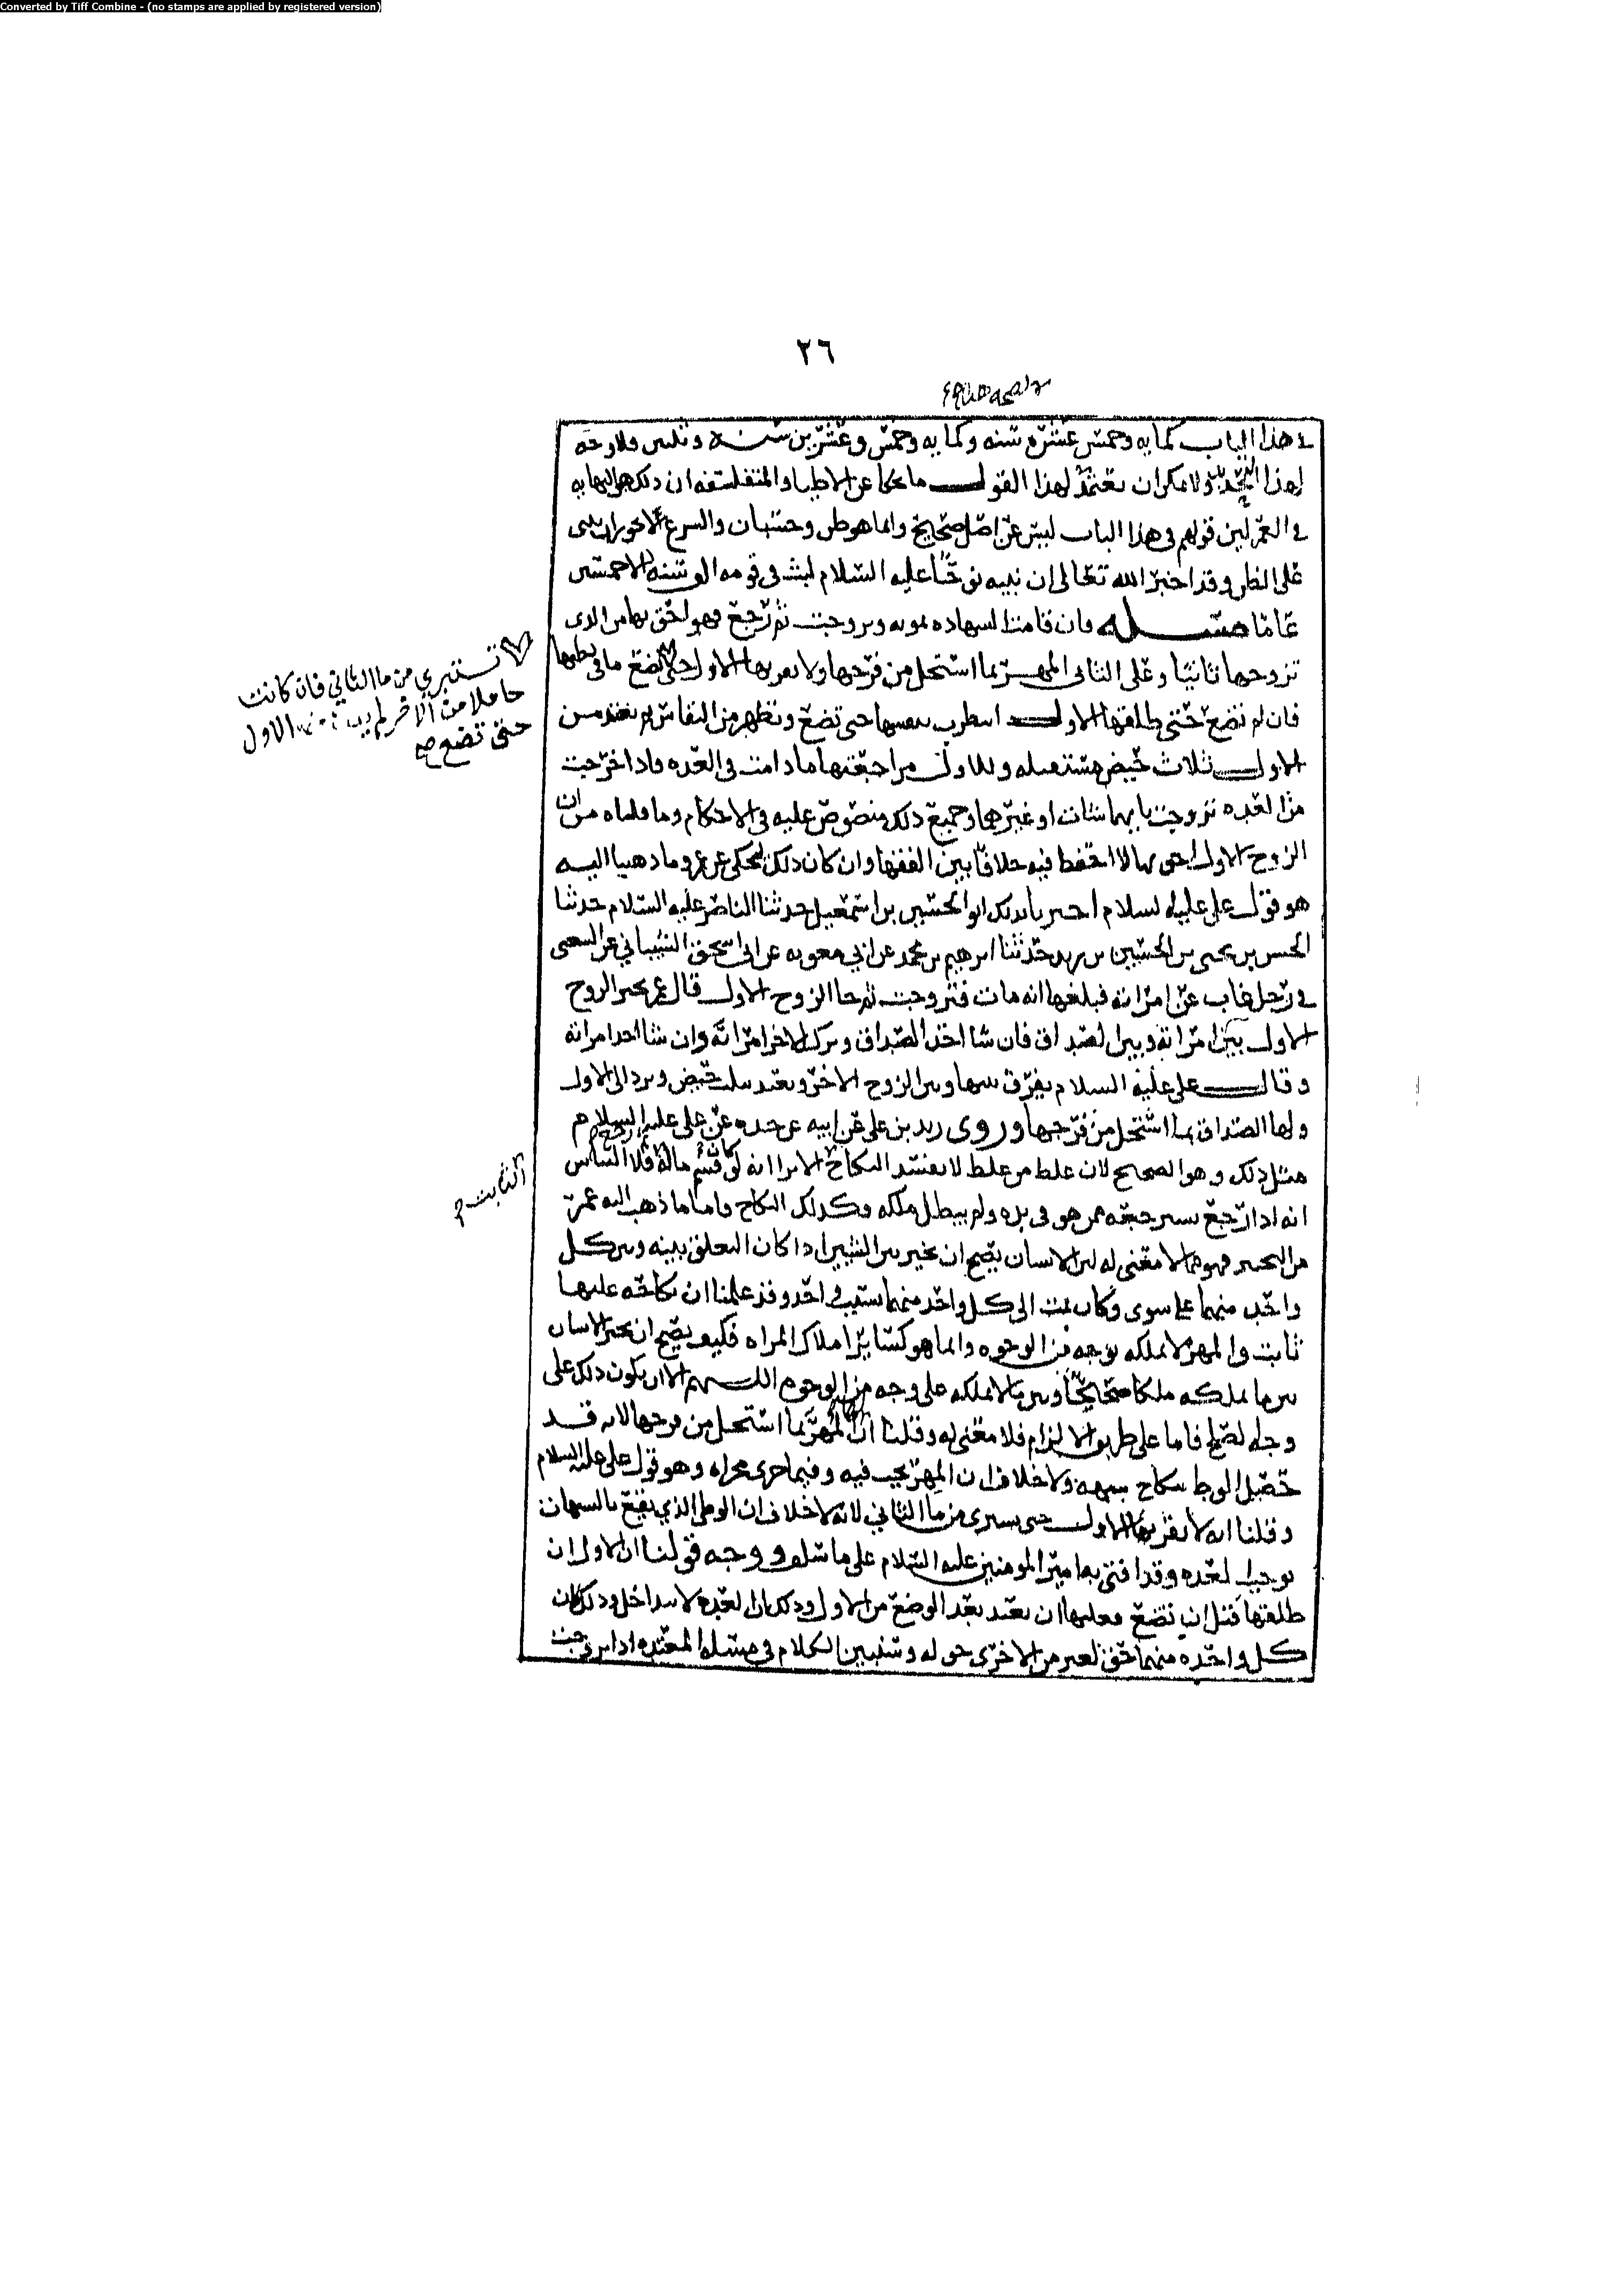 Converted by Tiff Combine - (no stamps are applied by registered version)
٢٦
في هذا الباب كمايه وخمس عشره سنه وكمايه وخمس وعشرين سنه وثلثين فلا وجه
لهذا التحديد ولا يمكن ان يعتمد لهذا القول ما يحكا عن الاطبا والمتفلسفه ان ذلك هو النهايه
في العمر لان قولهم في هذا الباب ليس عن اصل صحيح وانما هو ظن وحسبان والشرع لا يجوز ان يبنى
على الظن وقد اخبر الله تعالى ان نبيه نوحا عليه السلام لبث في قومه الف سنه الا خمسين
عاما مسئله فان قامت الشهاده بموته وتزوجت ثم رجع فهو احق بها من الذي
تزوجها ثانيا وعلى الثاني المهر بما استحل من فرجها ولا يقربها الاول حتى تضع ما في بطنها
تستبري من ما الثاني فان كانت
حاملا من الاخر لم الاول
حتى تضع صح
فان لم تضع حتى طلقها الاول انتظرت بنفسها حتى تضع وتطهر من النفاس ثم تعتد من
الاول ثلاث حيض مستقبله وللاول مراجعتها ما دامت في العده فاذا خرجت
من العده تزوجت بايهما شات او غيرهما وجميع ذلك منصوص عليه في الاحكام وما قلناه من ان
الزوج الاول احق بها لا احفظ فيه خلافا بين الفقها وان كان ذلك يحكى عن عمر وما ذهبنا اليه
هو قول علي عليه السلام اخبرنا بذلك ابو الحسين بن اسمعيل حدثنا الناصر عليه السلام حدثنا
الحسن بن يحيى بن الحسين بن زيد حدثنا ابرهيم بن محمد عن ابي معويه عن ابي اسحق الشيباني عن الشعبي
في رجل غاب عن امراته فبلغها انه مات فتزوجت ثم جا الزوج الاول قال عمر يخير الزوج
الاول بين امراته وبين الصداق فان شا اخذ الصداق وترك للاخر امراته وان شا اخذ امراته
وقال علي عليه السلام يفرق بينها وبين الزوج الاخر وتعتد ثلث حيض وترد الى الاول
ولها الصداق بما استحل من فرجها وروى زيد بن علي عن ابيه عن جده عن علي عليه السلام
مثل ذلك وهو الصحيح لان غلط من غلط لا يفسد النكاح الثابت الا ترا انه لو كان قسم ماله
انه اذا رجع يسترجعه ممن هو في يده ولم يبطل ملكه وكذلك النكاح فاما ما ذهب اليه عمر
من التخيير فهو مما لا معنى له لان الانسان يصح ان يخير بين الشيين اذا كان التعلق بينه وبين كل
واحد منهما على سوى وكان يمت الى كل واحد منهما بسبب واحد وقد علمنا ان نكاحه عليها
ثابت والمهر لا يملكه بوجه من الوجوه وانما هو كسائر املاك المراه فكيف يصح ان يخير الانسان
بين ما يملكه ملكا صحيحا وبين ما لا يملكه على وجه من الوجوه اللهم الا ان يكون ذلك على
وجه الصلح فاما على طريق الالزام فلا معنى له وقلنا ان لها المهر بما استحل من فرجها لانه قد
حصل الوطا بنكاح شبهه ولا خلاف ان المهر يجب فيه وفيما جرى مجراه وهو قول علي عليه السلام
وقلنا انه لا يقربها الاول حتى تستبري من ما الثاني لانه لا خلاف ان الوطى الذي يقع بالشبهات
يوجب العده وقد افتى به امير المومنين عليه السلام على ما سلف ووجه قولنا ان الاول ان
طلقها قبل ان تضع فعليها ان تعتد بعد الوضع من الاول وذلك ان العده لا تتداخل وذلك ان
كل واحده منهما حق لغير من الاخرى حق له وسنبين الكلام في مسئله المعتده اذا تزوجت